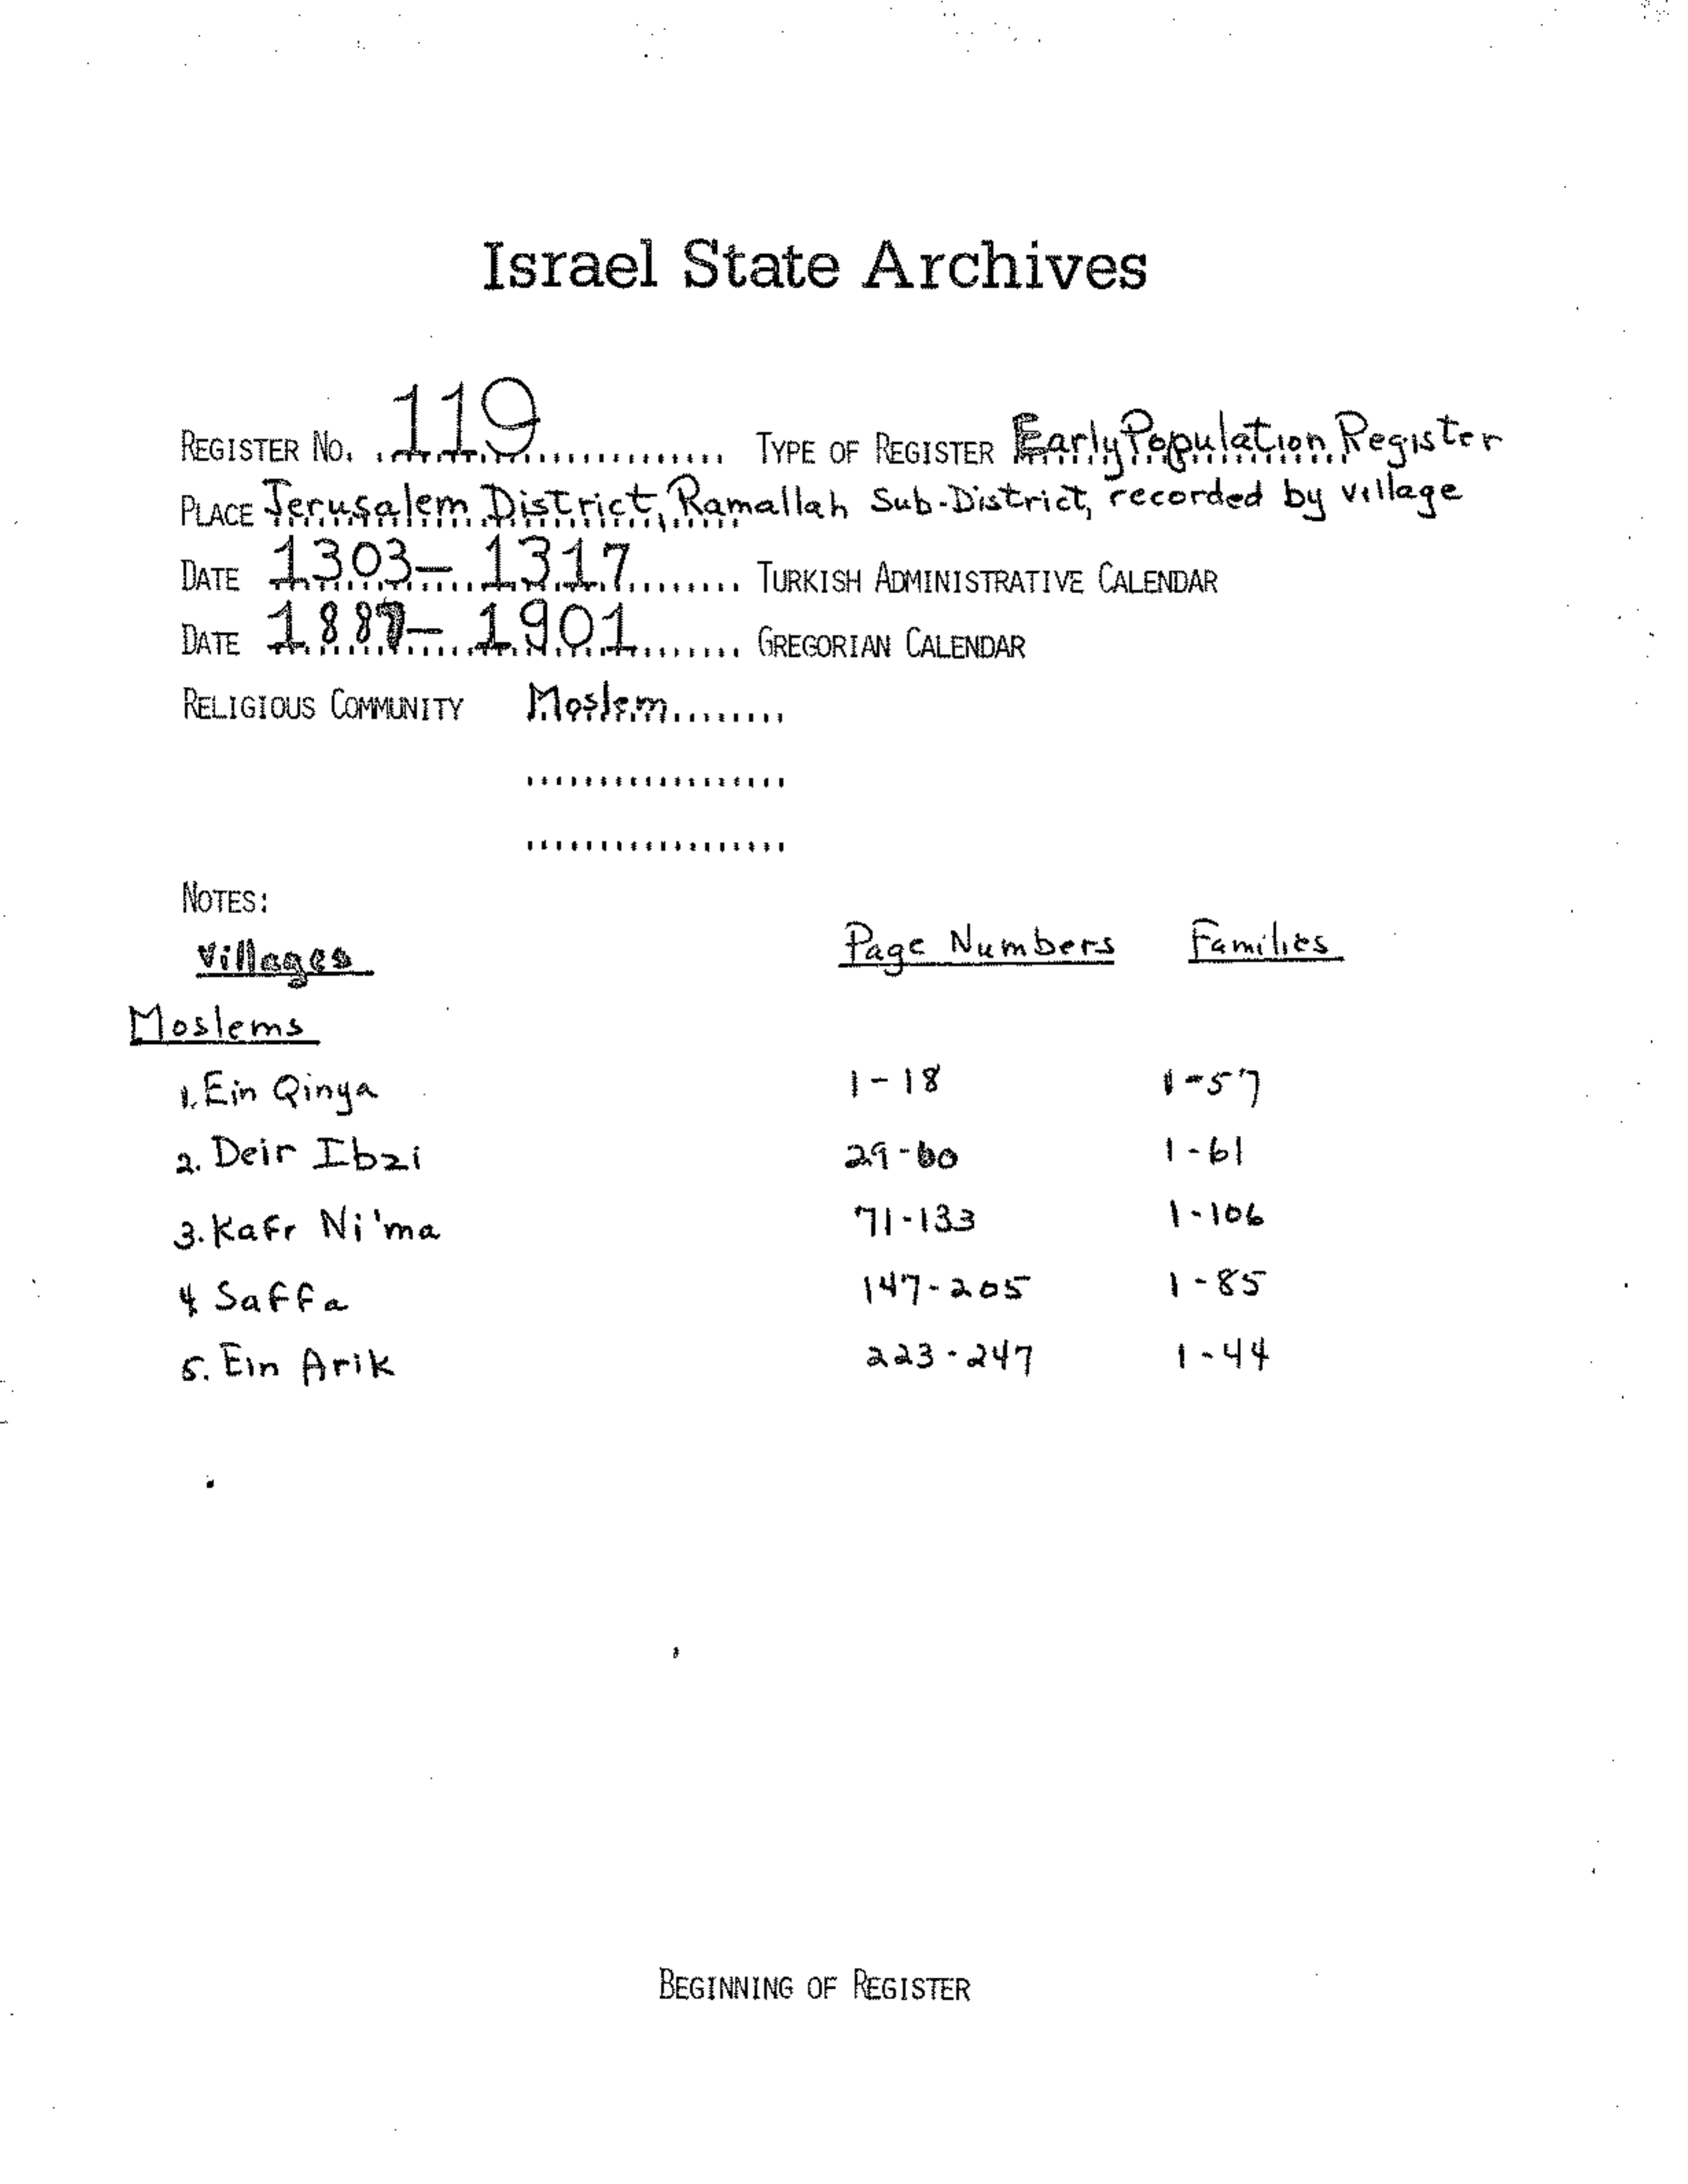 Israel State Archives
REGISTER NO. 119 TYPE OF REGISTER Early Population Register
PLACE Jerusalem District, Ramallah Sub-District, recorded by village
DATE 1303 – 1317 TURKISH ADMINISTRATIVE CALENDAR
DATE 1887 – 1901 GREGORIAN CALENDAR
RELIGIOUS COMMUNITY Moslem
NOTES:
Villages Page Numbers Families
Moslems
1. Ein Qinya 1-18 1-57
2. Deir Ibzi 29-60 1-61
3. Kafr Ni'ma 71-133 1-106
4. Saffa 147-205 1-85
5. Ein Arik 223-247 1-44
BEGINNING OF REGISTER